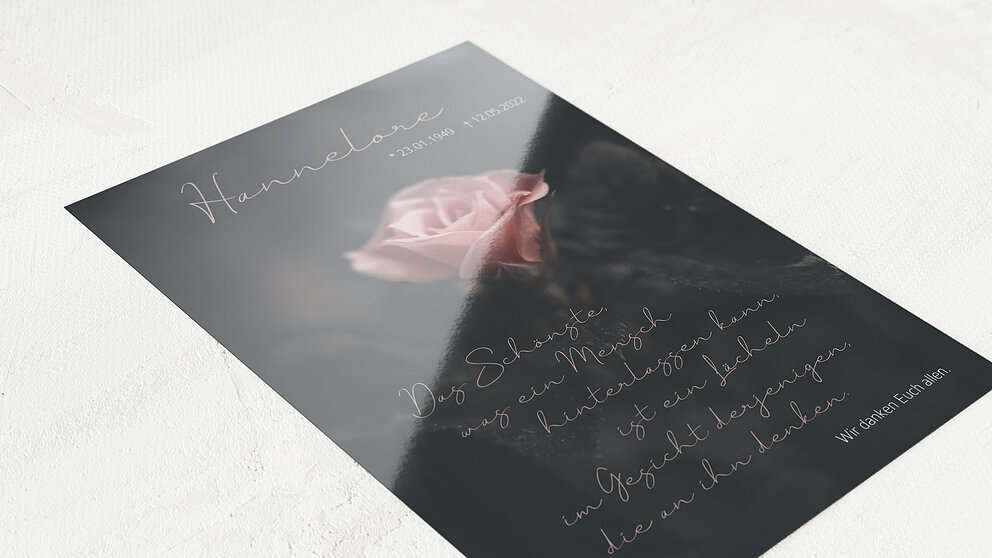 Hannelore
* 23.01.1949 † 12.05.2022
Das Schönste,
was ein Mensch
hinterlassen kann,
ist ein Lächeln
im Gesicht derjenigen,
die an ihn denken.
Wir danken Euch allen.